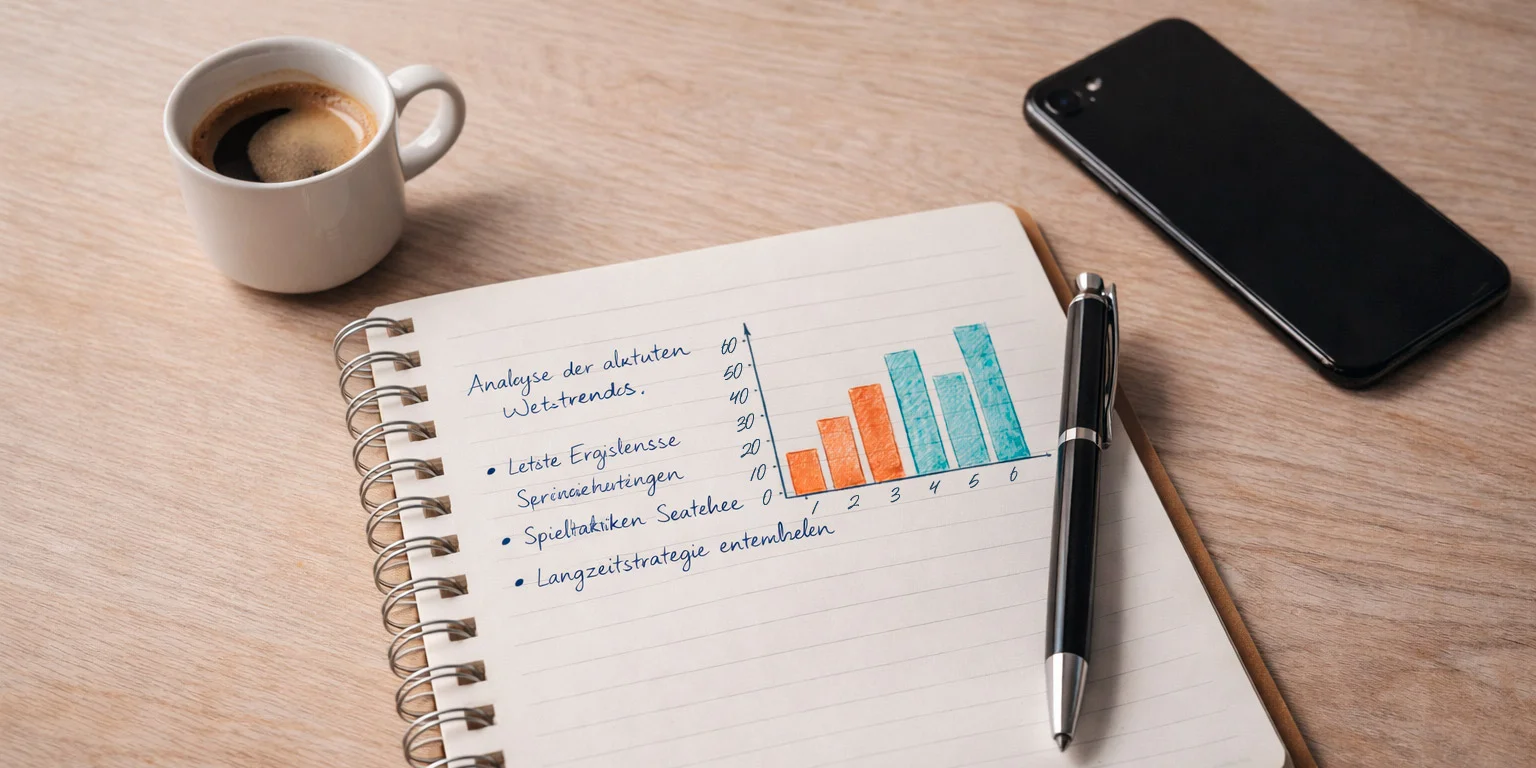 Analyse der alktuten
Wet-trends.
• Letste Ergislensse
Sprinciehertingen
• Spieltaktiken Seatehee
• Langzeitstrategie entembelen
60
50
40
30
20
10
0
1 2 3 4 5 6